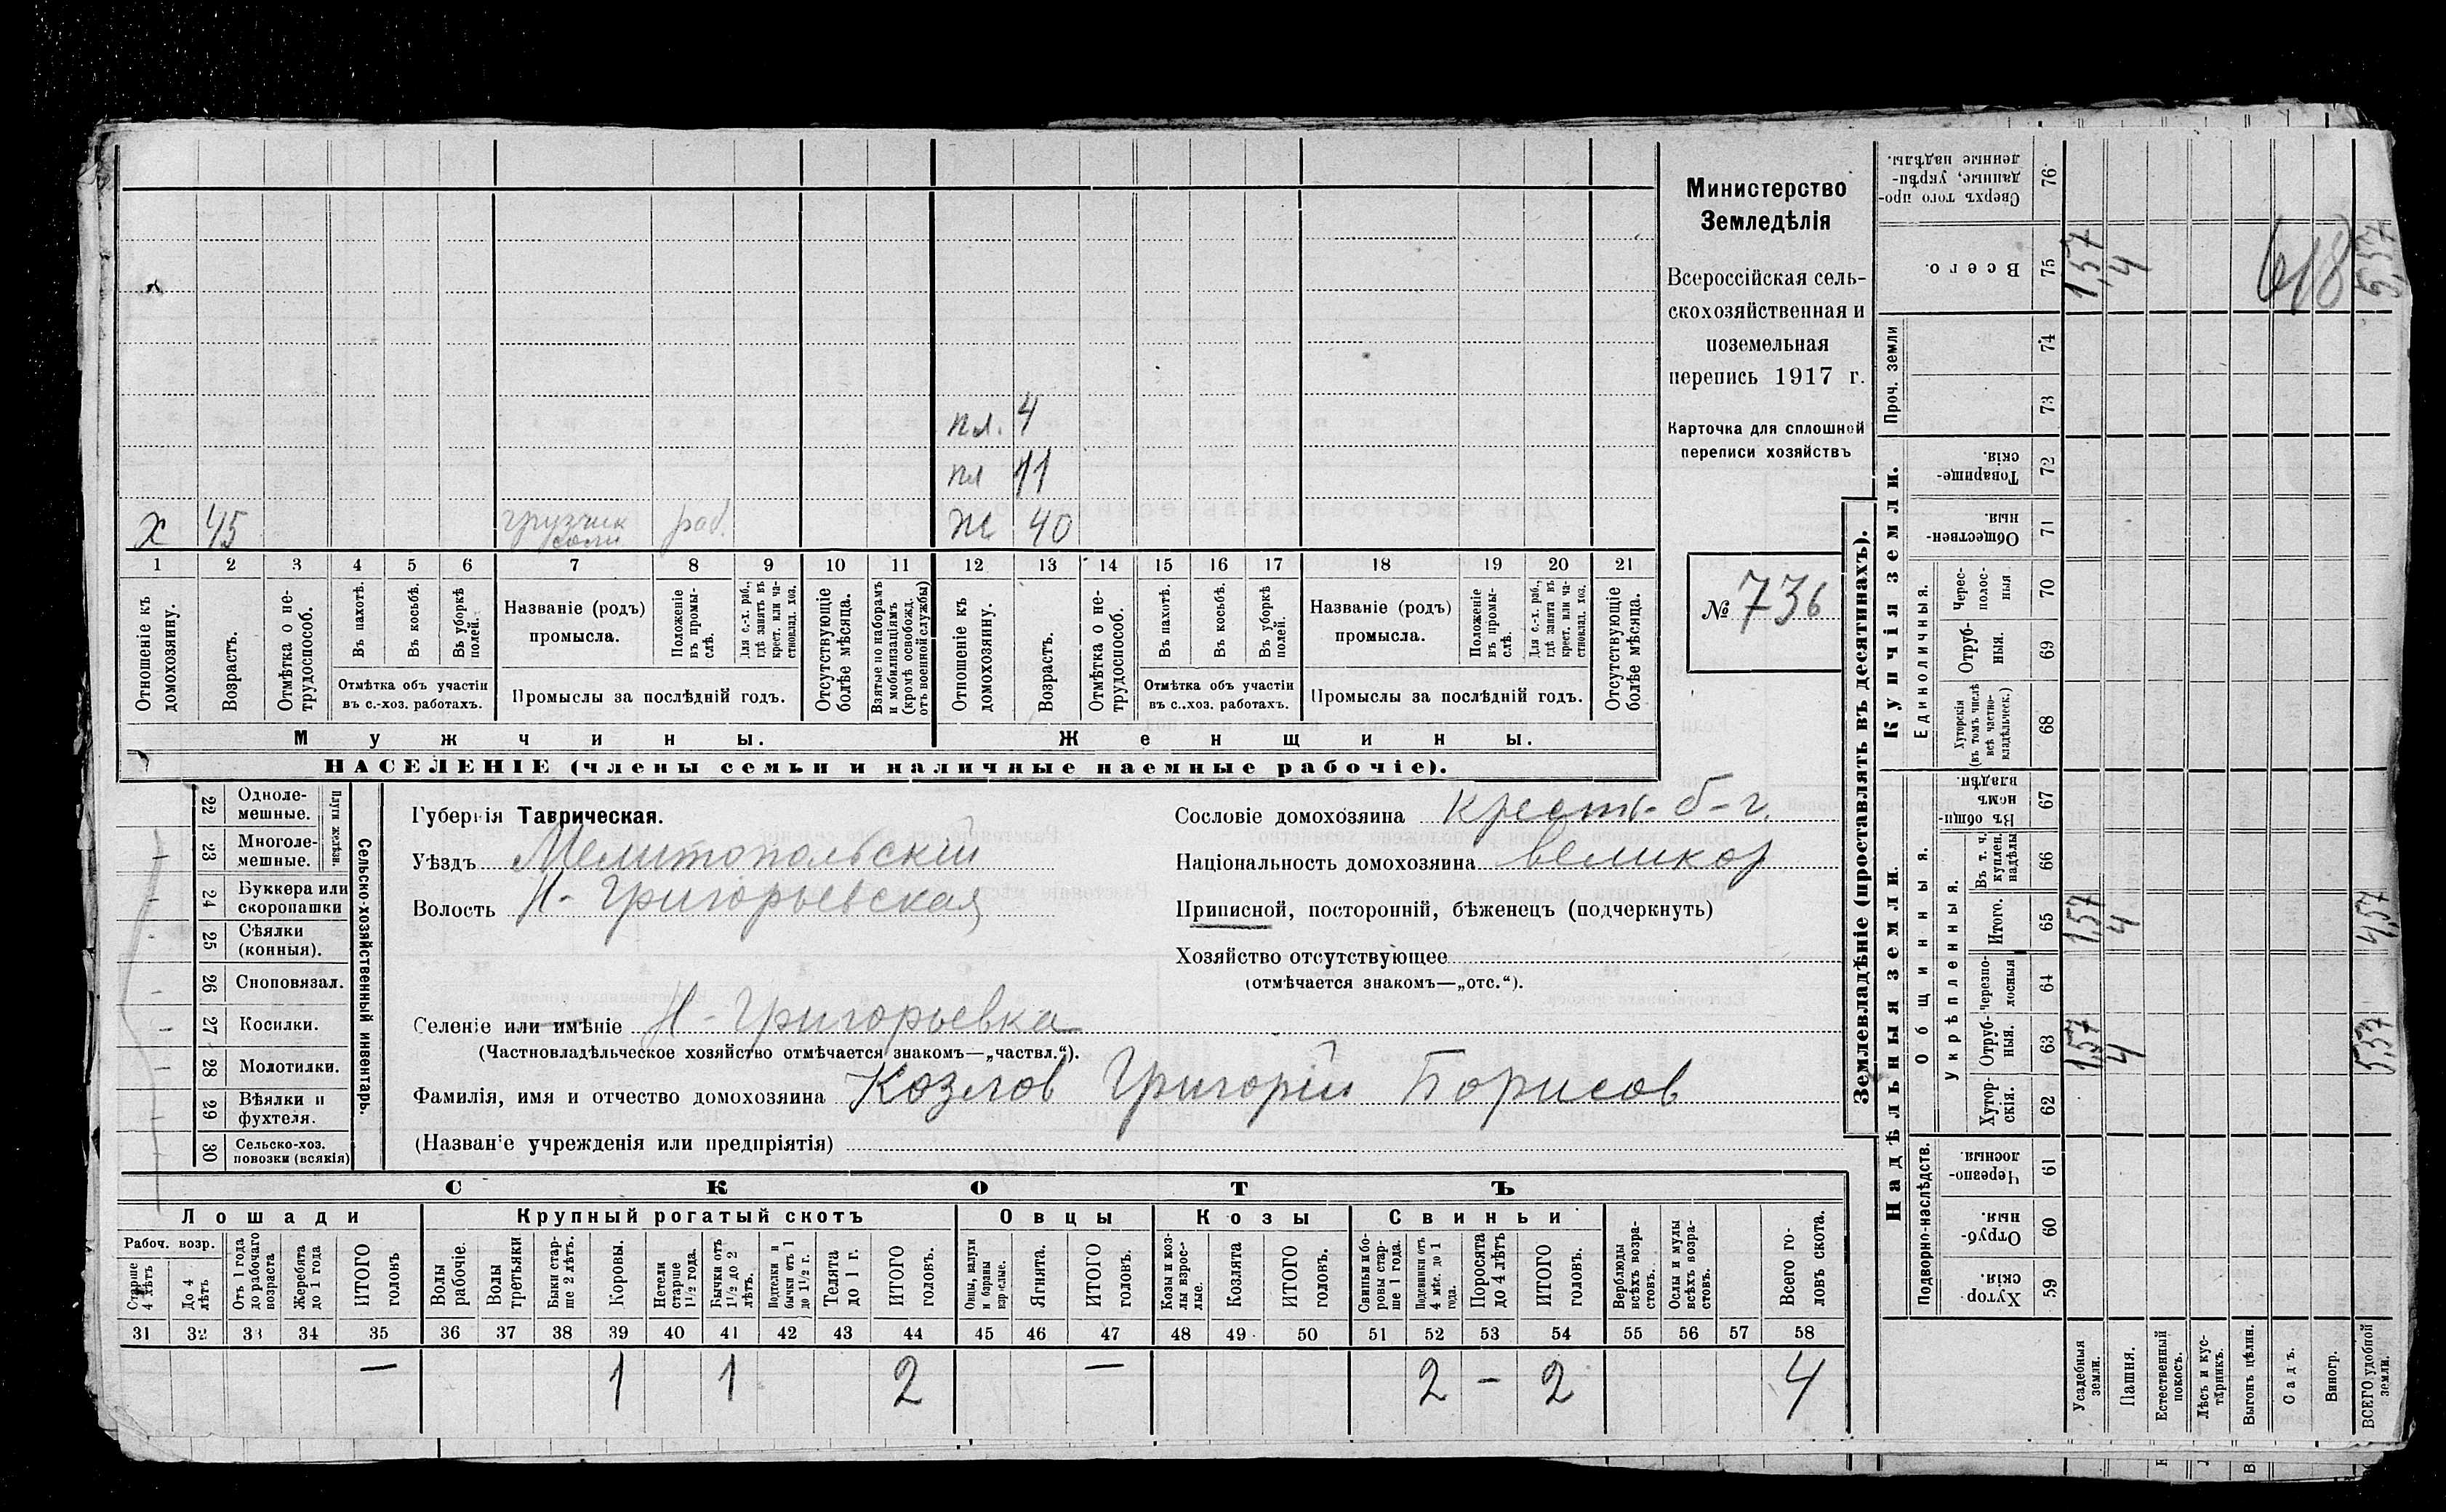 Министерство
Земледѣлія
Всероссійская сель-
скохозяйственная и
поземельная
перепись 1917 г.
Карточка для сплошной
переписи хозяйствъ
№ 736
пл. 4
пл 11
х 45 грузчик соли раб. ж 40
1 2 3 4 5 6 7 8 9 10 11 12 13 14 15 16 17 18 19 20 21
Отношеніе къ домохозяину.
Возрастъ.
Отмѣтка о не-трудоспособ.
Въ пахотѣ.
Въ косьбѣ.
Въ уборкѣ полей.
Отмѣтка объ участіи въ с.-хоз. работахъ.
Названіе (родъ) промысла.
Положеніе въ промы-слѣ.
Для с.-х. раб., гдѣ занятъ въ крест. или ча-стновлад. хоз.
Промыслы за послѣдній годъ.
Отсутствующіе болѣе мѣсяца.
Взятые по наборамъ и мобилизаціямъ (кромѣ освобожд. отъ военной службы)
Отношеніе къ домохозяину.
Возрастъ.
Отмѣтка о не-трудоспособ.
Въ пахотѣ.
Въ косьбѣ.
Въ уборкѣ полей.
Отмѣтка объ участіи въ с..хоз. работахъ.
Названіе (родъ) промысла.
Положеніе въ промы-слѣ.
Для с.-х. раб., гдѣ занята въ крест. или ча-стновлад. хоз.
Промыслы за послѣдній годъ.
Отсутствующіе болѣе мѣсяца.
Мужчины. Женщины.
НАСЕЛЕНІЕ (члены семьи и наличные наемные рабочіе).
Сельско-хозяйственный инвентарь.
Плуги желѣзн.
22 Одноле-мешные.
23 Многоле-мешные. —
24 Буккера или скоропашки —
25 Сѣялки (конныя). —
26 Сноповязал. —
27 Косилки. —
28 Молотилки. —
29 Вѣялки и фухтеля. —
30 Сельско-хоз. повозки (всякія)
Губернія Таврическая.
Уѣздъ Мелитопольскій
Волость Н-Григорьевская
Селеніе или имѣніе Н-Григорьевка
(Частновладѣльческое хозяйство отмѣчается знакомъ—„частвл.“).
Фамилія, имя и отчество домохозяина Козлов Григорій Борисов
(Названіе учрежденія или предпріятія)
Сословіе домохозяина крест. б-г.
Національность домохозяина великор
Приписной, посторонній, бѣженецъ (подчеркнуть)
Хозяйство отсутствующее
(отмѣчается знакомъ—„отс.“).
СКОТЪ
Лошади Крупный рогатый скотъ Овцы Козы Свиньи
Рабоч. возр.
Старше 4 лѣтъ
До 4 лѣтъ
Отъ 1 года до рабочаго возраста
Жеребята до 1 года
ИТОГО головъ
Волы рабочіе.
Волы третьяки
Быки стар-ше 2 лѣтъ.
Коровы.
Нетели старше 1 1/2 года.
Бычки отъ 1 1/2 до 2 лѣтъ.
Подтелки и бычки отъ 1 до 1 1/2 г.
Телята до 1 г.
ИТОГО головъ.
Овцы, валухи и бараны взрослые.
Ягнята.
ИТОГО головъ.
Козы и коз-лы взрос-лые.
Козлята
ИТОГО головъ.
Свиньи и бо-ровы стар-ше 1 года.
Подсвинки отъ 4 мѣс. до 1 года.
Поросята до 4 лѣтъ
ИТОГО головъ.
Верблюды всѣхъ возра-стовъ.
Ослы и мулы всѣхъ возра-стовъ.
Всего го-ловъ скота.
31 32 33 34 35 36 37 38 39 40 41 42 43 44 45 46 47 48 49 50 51 52 53 54 55 56 57 58
— 1 1 2 — 2 — 2 4
Землевладѣніе (проставлять въ десятинахъ).
Купчія земли.
Надѣльныя земли.
Сверхъ того про-данные, укрѣп-ленные надѣлы. 76
Всего. 75 1,57 4 5,57
618
Проч. земли 74 73
Товарище-скія. 72
Обществен-ныя. 71
Единоличныя.
Черес-полос-ныя 70
Отруб-ныя. 69
Хуторскія (въ томъ числѣ всѣ частно-владѣльческ.) 68
Общинныя.
Въ общин-номъ владѣн. 67
Укрѣпленныя.
Въ т. ч. куплен. надѣлы 66
Итого. 65 1,57 4 4,57
Черезпо-лосныя 64
Отруб-ныя. 63 1,57 4 5,57
Хутор-скія. 62
Подворно-наслѣдств.
Черезпо-лосныя. 61
Отруб-ныя. 60
Хутор-скія. 59
Усадебныя земли.
Пашня.
Естественный покосъ.
Лѣсъ и кус-тарникъ.
Выгонъ цѣлин.
Садъ.
Виногр.
ВСЕГО удобной земли.